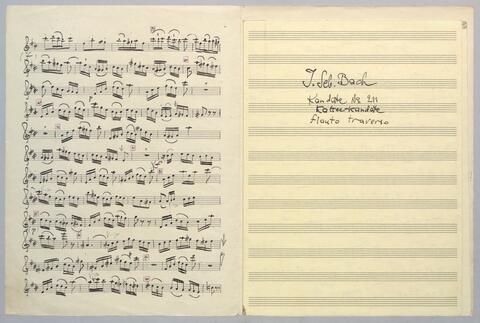 J. Seb. Bach
Kantate No 211
Kaffeekantate
flauto traverso